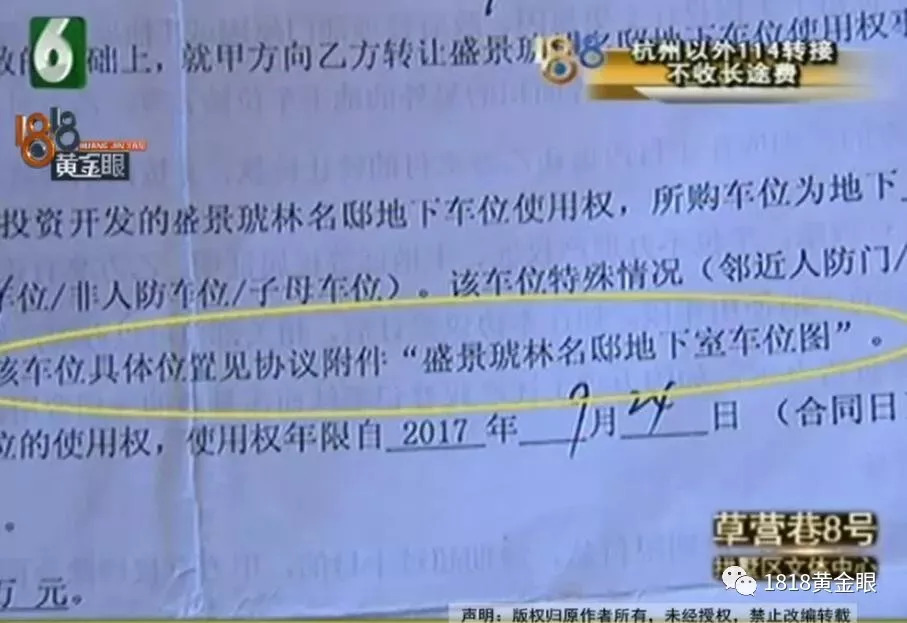 6
础上，就甲方向乙方转让盛景琥林名邸地下车位使用权
1818
杭州以外114转接
不收长途费
1818
HUANG JIN YAN
黄金眼
投资开发的盛景琥林名邸地下车位使用权，所购车位为地下
位/非人防车位/子母车位）。该车位特殊情况（邻近人防门/
该车位具体位置见协议附件“盛景琥林名邸地下室车位图”。
位的使用权，使用权年限自 2017 年 9 月 24 日 （合同日
。
草营巷8号
区文体中心
1818黄金眼
万 元。
声明：版权归原作者所有，未经授权，禁止改编转载